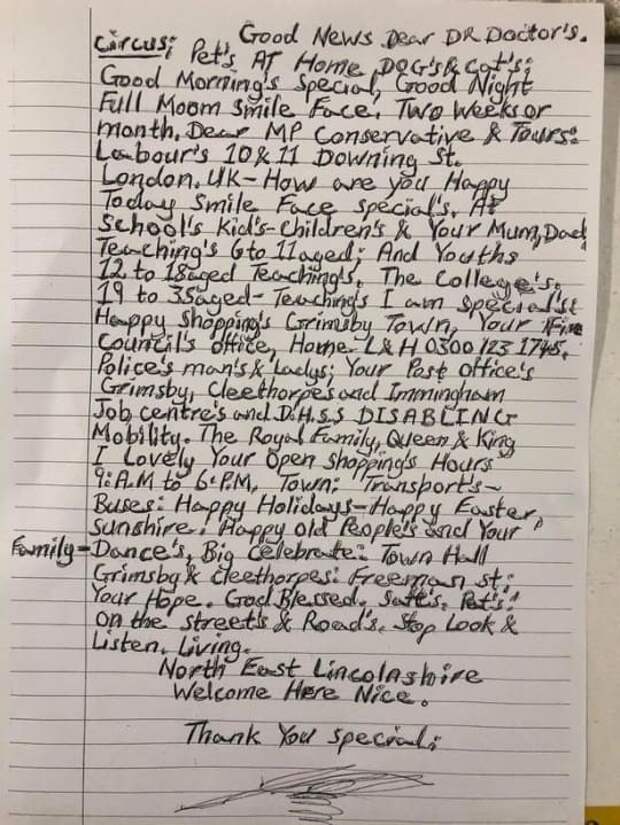 Good News Dear DR Doctor's.
Circus; Pet's AT Home DOG's & Cat's;
Good Morning's special, Good Night
Full Moom Smile Face. Two Weeks or
month. Dear MP Conservative & Tours:
Labour's 10 & 11 Downing St.
London. UK - How are you Happy
Today Smile Face special's. At
School's Kid's - Children's & Your Mum, Dad
Teaching's 6 to 11 aged; And Youths
12 to 18 aged Teaching's. The College's.
19 to 35 aged - Teaching's I am special'st
Happy shopping's Grimsby Town, Your Fire
Council's office, Home L & H 0300 123 1745.
Police's man's & Lady's; Your Post office's
Grimsby, Cleethorpes and Immingham
Job centre's and D.H.S.S DISABLING
Mobility. The Royal Family, Queen & King
I Lovely Your Open Shopping's Hours
9: A.M to 6: P.M, Town: Transport's ~
Buses: Happy Holidays - Happy Easter,
sunshire. Happy old People's and Your
Family - Dance's, Big Celebrate: Town Hall
Grimsby & Cleethorpes: Freeman st;
Your Hope. God Blessed. Pet's:
on the street's & Road's. Stop Look &
Listen. Living.
North East Lincolnshire
Welcome Here Nice.
Thank You special;